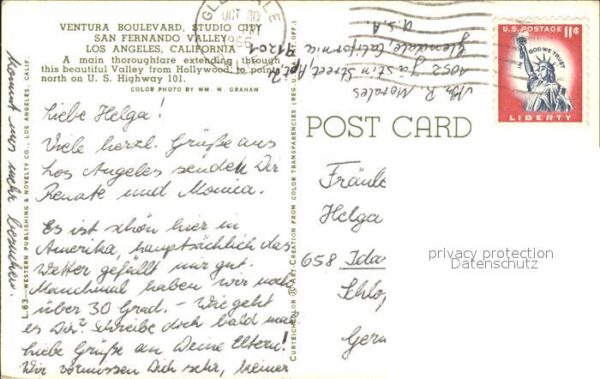 VENTURA BOULEVARD, STUDIO CITY
SAN FERNANDO VALLEY
LOS ANGELES, CALIFORNIA
A main thoroughfare extending through
this beautiful Valley from Hollywood to points
north on U. S. Highway 101.
COLOR PHOTO BY WM. M. GRAHAM
Liebe Helga!
Viele herzl. Grüße aus
Los Angeles senden Dir
Renate und Monica.
Es ist schön hier in
Amerika, hauptsächlich das
Wetter gefällt mir gut.
Manchmal haben wir noch
über 30 Grad. - Wie geht
es Dir? Schreibe doch bald mal
liebe Grüße an Deine Eltern!
Wir vermissen Dich sehr, keiner
kommt uns mehr besuchen.
L-63—WESTERN PUBLISHING & NOVELTY CO., LOS ANGELES, CALIF.
CREATION FROM COLOR TRANSPARENCIES (REG.
OCT 20
1966
R. Morales
1052 Justin Street, Apt.
Glendale, California 91201
U.S.A
U.S. POSTAGE 11¢
IN GOD WE TRUST
LIBERTY
POST CARD
Fräule
Helga
658 Idar
Schlo
Germ
privacy protection
Datenschutz